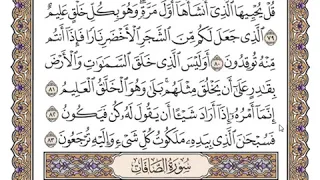 قُلْ يُحْيِيهَا ٱلَّذِىٓ أَنشَأَهَآ أَوَّلَ مَرَّةٍۢ وَهُوَ بِكُلِّ خَلْقٍ عَلِيمٌ
٧٩ ٱلَّذِى جَعَلَ لَكُم مِّنَ ٱلشَّجَرِ ٱلْأَخْضَرِ نَارًا فَإِذَآ أَنتُم
مِّنْهُ تُوقِدُونَ ٨٠ أَوَلَيْسَ ٱلَّذِى خَلَقَ ٱلسَّمَٰوَٰتِ وَٱلْأَرْضَ
بِقَٰدِرٍ عَلَىٰٓ أَن يَخْلُقَ مِثْلَهُم بَلَىٰ وَهُوَ ٱلْخَلَّٰقُ ٱلْعَلِيمُ ٨١
إِنَّمَآ أَمْرُهُۥٓ إِذَآ أَرَادَ شَيْـًٔا أَن يَقُولَ لَهُۥ كُن فَيَكُونُ ٨٢
فَسُبْحَٰنَ ٱلَّذِى بِيَدِهِۦ مَلَكُوتُ كُلِّ شَىْءٍۢ وَإِلَيْهِ تُرْجَعُونَ ٨٣
سُورَةُ ٱلصَّافَّاتِ